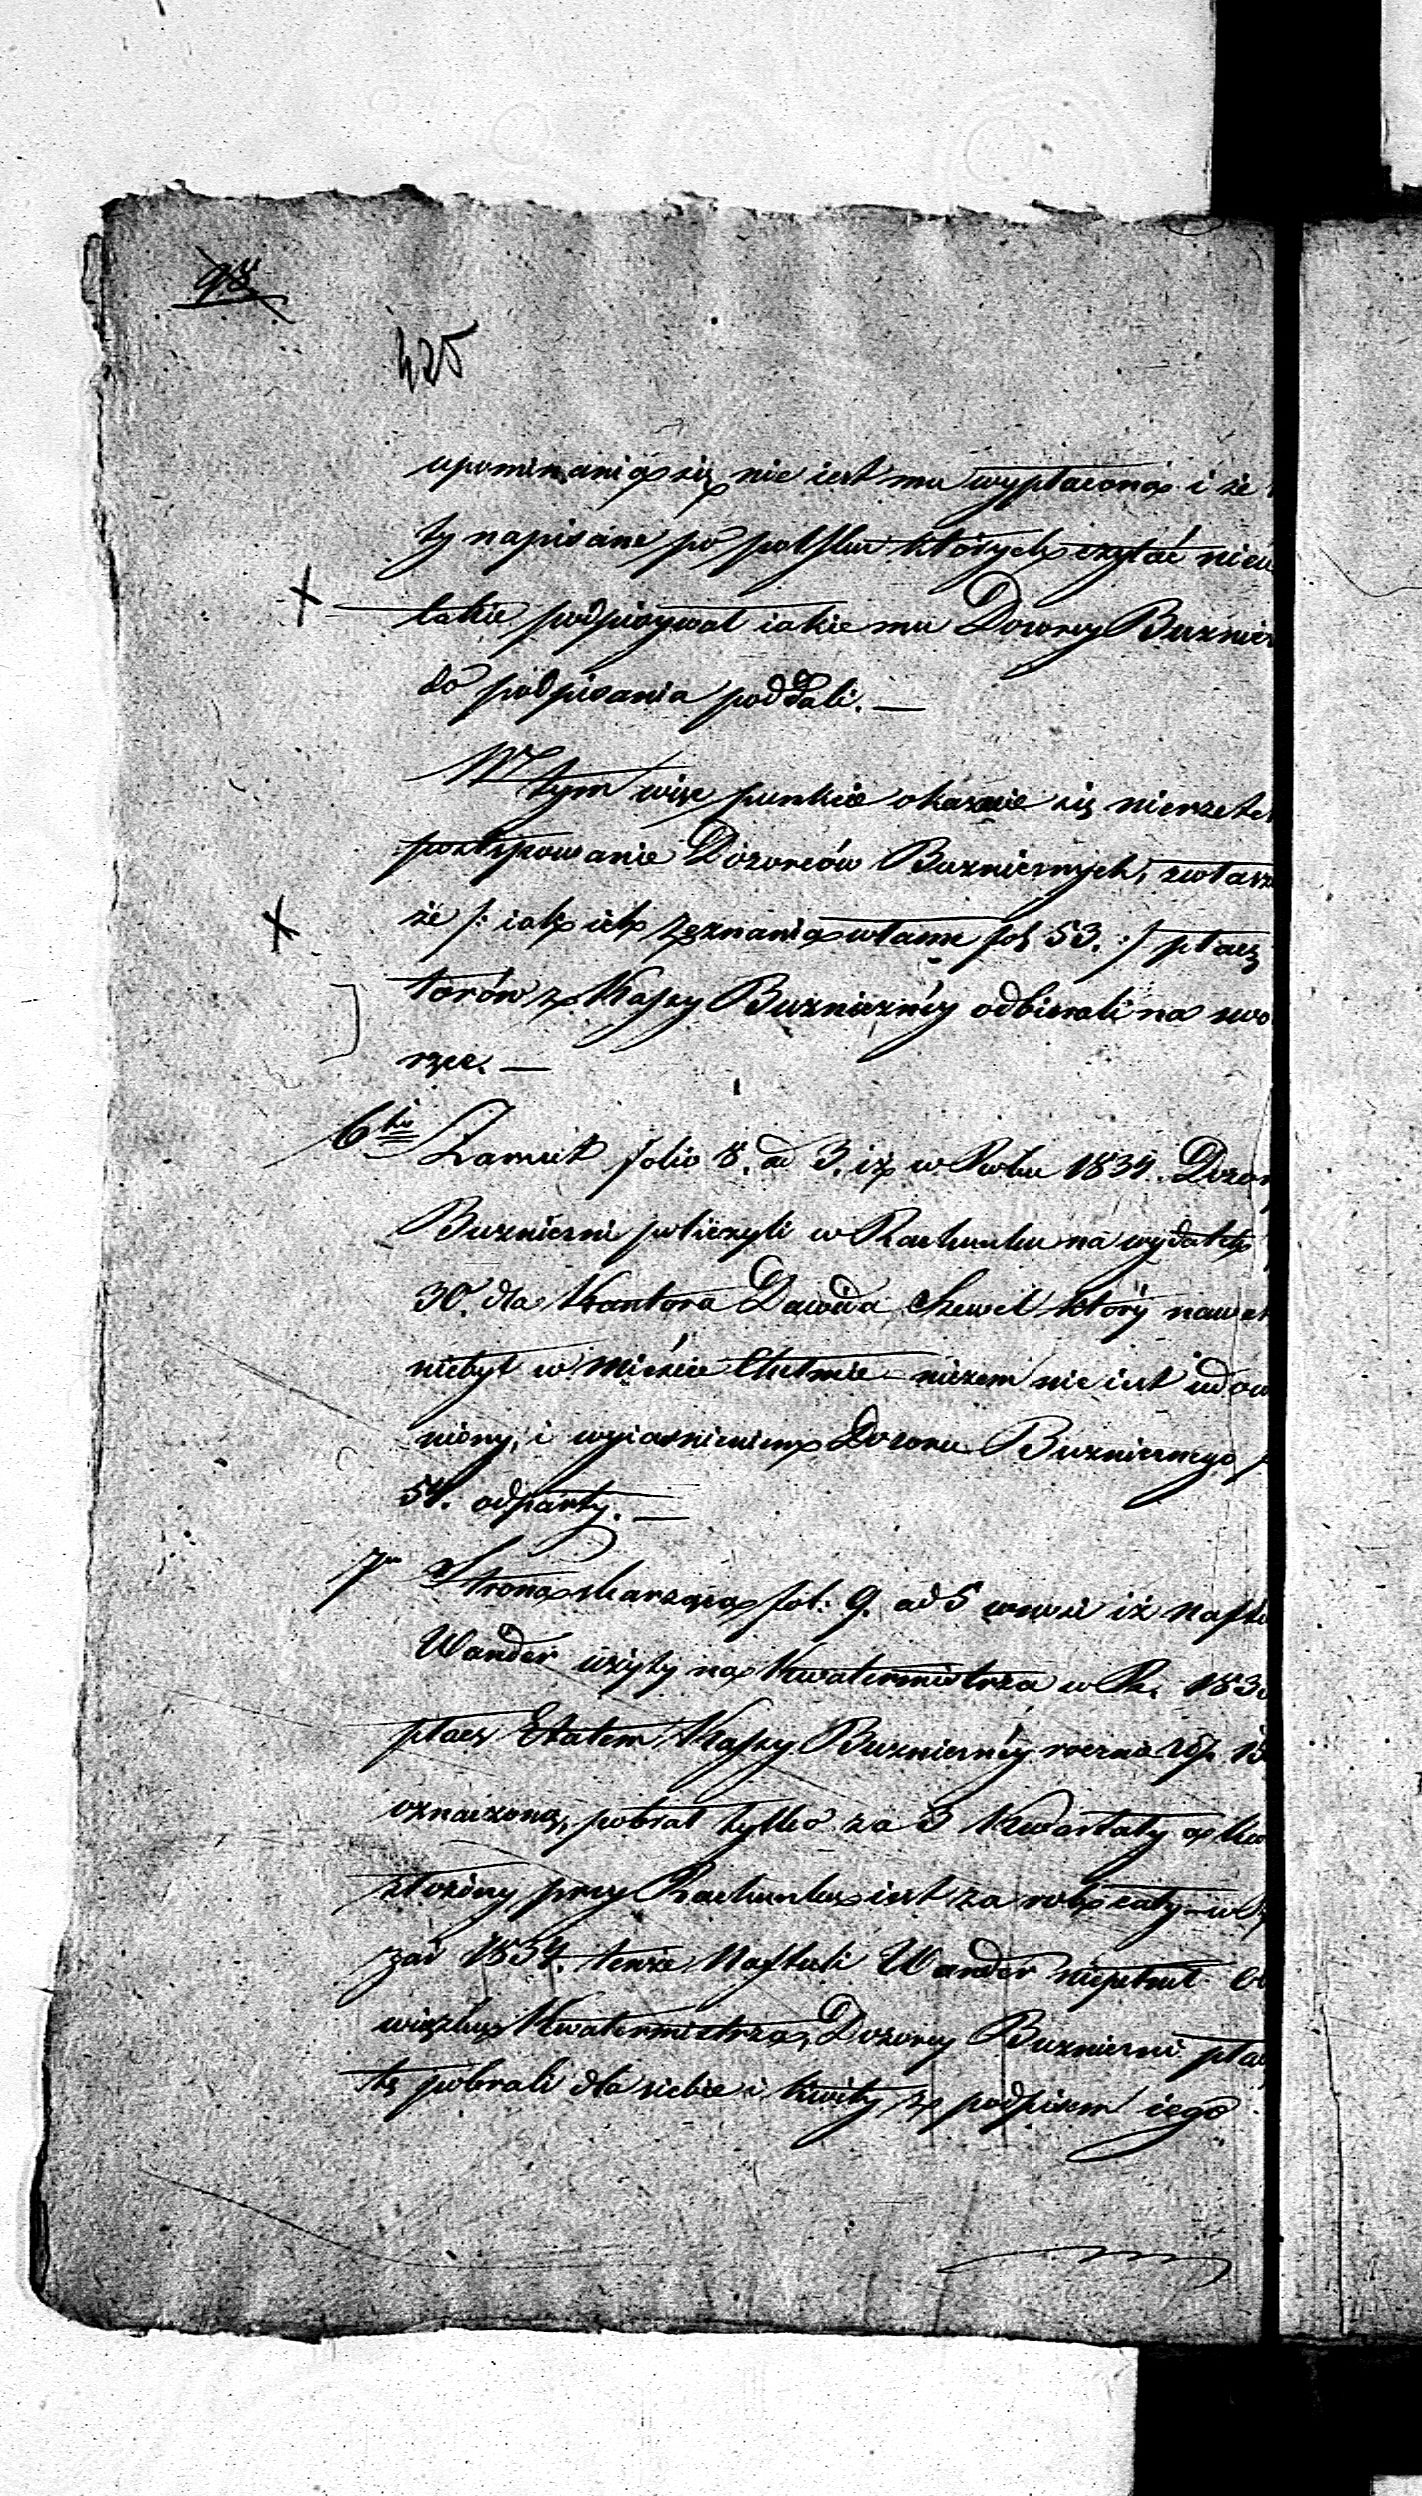 98
425
upominania się nie iest mu wypłacona i że
ty napisane po polsku których czytać nieu
takie podpisywał iakie mu Dozorcy Bużnicz
do podpisania poddali. —
W tym więc punkcie okazuie się nierzetel
postępowanie Dozorców Bużnicznych, zwłaszcz
że /: iak ich zeznania własne fol 53. :/ płacę
torów z Kassy Bużniczney odbierali na swo
rzec. —
6to Zarzut folio 8. ad 3. iż w Roku 1834. Dozor
Bużniczni policzyli w Rachunku na wydatek
30. dla Kantora Dawida Szewel który nawet
niebył w Mieście Chełmie — niczem nie iest udow
niony, i wyiaśnieniem Dozoru Bużnicznego
54. odparty. —
7mo Strona skarżąca fol: 9. ad 5 wnosi iż Naft
Wander użyty na Kwatermistrza w R. 183
płacę Etatem Kassy Bużniczney rocznie 15
oznaczoną, pobrał tylko za 3 Kwartały a kw
złożony przy Rachunku iest za rok cały — w R
zaś 1834. tenże Naftuli Wander niepełnił Ob
wiązku Kwatermistrza, Dozorcy Bużniczni płac
tę pobrali dla siebie i kwity z podpisem iego